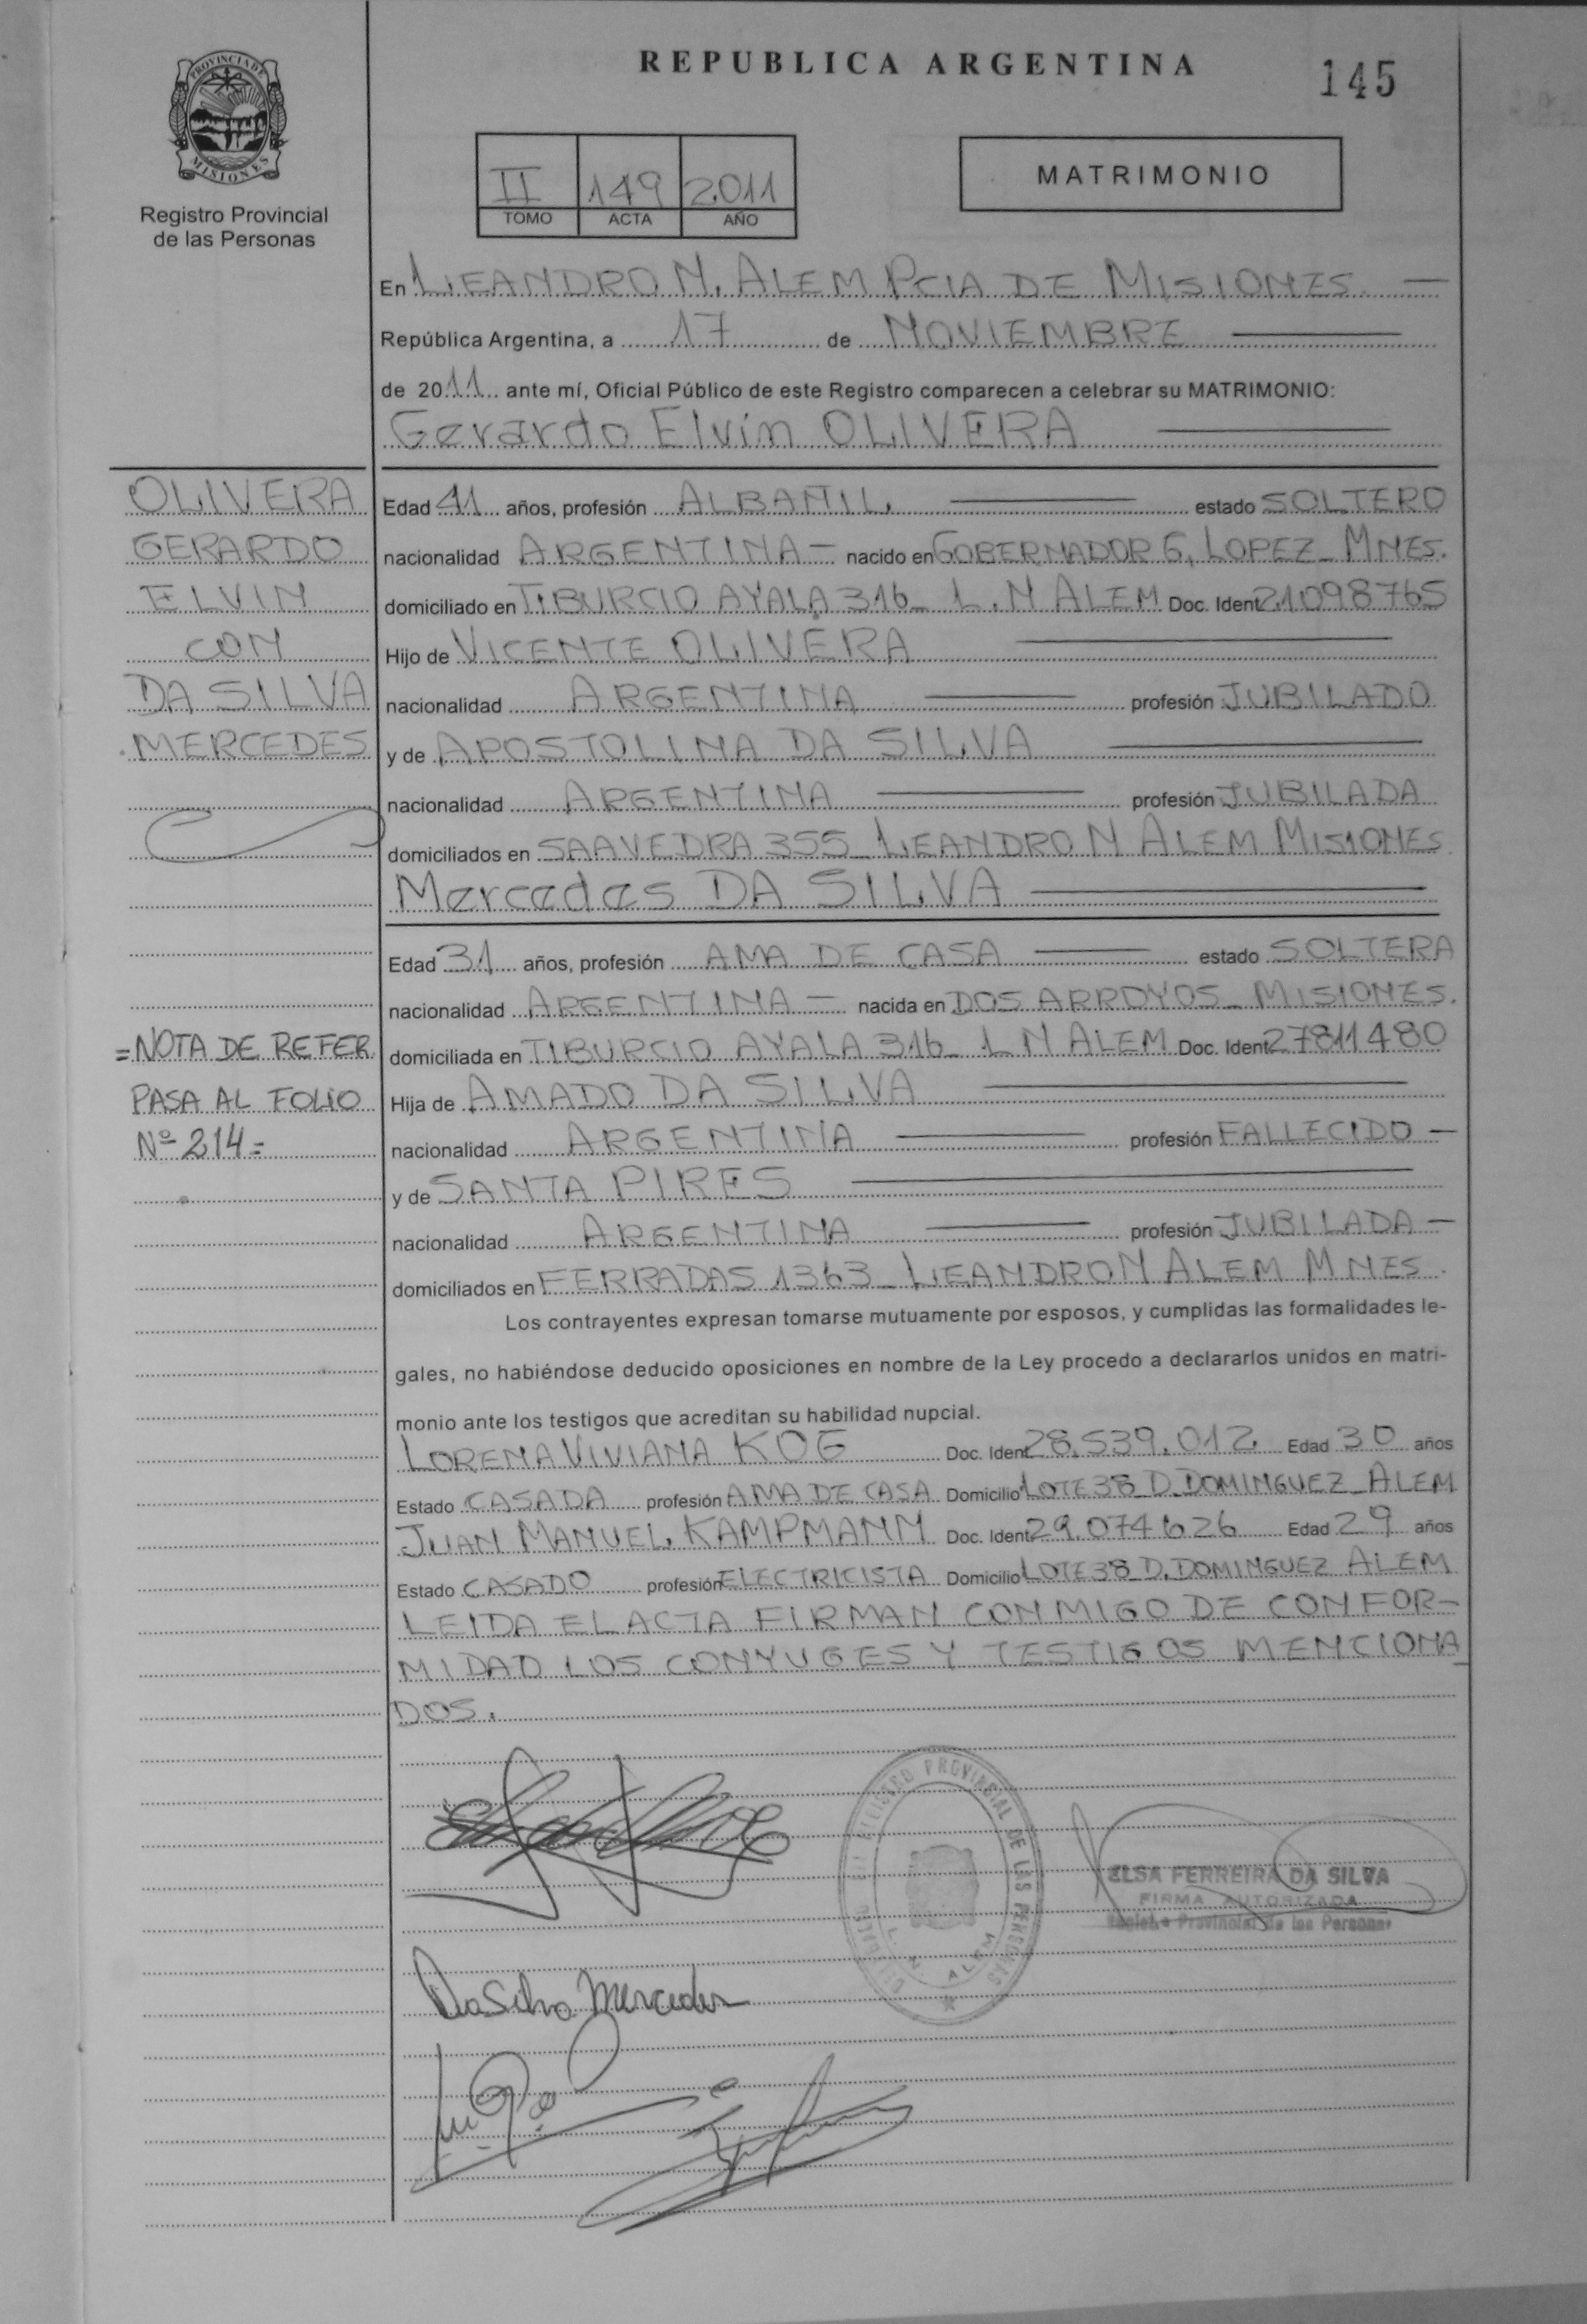 REPUBLICA ARGENTINA
145
PROVINCIA DE
MISIONES
Registro Provincial
de las Personas
II 149 2011
TOMO ACTA AÑO
MATRIMONIO
En LEANDRO N. ALEM PCIA DE MISIONES
República Argentina, a 17 de NOVIEMBRE
de 2011 ante mí, Oficial Público de este Registro comparecen a celebrar su MATRIMONIO:
Gerardo Elvin OLIVERA
OLIVERA
GERARDO
ELVIN
CON
DA SILVA
MERCEDES
Edad 41 años, profesión ALBAÑIL estado SOLTERO
nacionalidad ARGENTINA - nacido en GOBERNADOR G. LOPEZ - MNES.
domiciliado en TIBURCIO AYALA 316 - L.N ALEM Doc. Ident 21098765
Hijo de VICENTE OLIVERA
nacionalidad ARGENTINA profesión JUBILADO
y de APOSTOLINA DA SILVA
nacionalidad ARGENTINA profesión JUBILADA
domiciliados en SAAVEDRA 355 - LEANDRO N ALEM MISIONES
Mercedes DA SILVA
Edad 31 años, profesión AMA DE CASA estado SOLTERA
nacionalidad ARGENTINA - nacida en DOS ARROYOS - MISIONES.
domiciliada en TIBURCIO AYALA 316 - L N ALEM Doc. Ident 27811480
Hija de AMADO DA SILVA
nacionalidad ARGENTINA profesión FALLECIDO -
y de SANTA PIRES
nacionalidad ARGENTINA profesión JUBILADA -
domiciliados en FERRADAS 1363 - LEANDRO N ALEM MNES.
=NOTA DE REFER
PASA AL FOLIO
Nº 214=
Los contrayentes expresan tomarse mutuamente por esposos, y cumplidas las formalidades le-
gales, no habiéndose deducido oposiciones en nombre de la Ley procedo a declararlos unidos en matri-
monio ante los testigos que acreditan su habilidad nupcial.
LORENA VIVIANA KOG Doc. Ident 28.539.012 Edad 30 años
Estado CASADA profesión AMA DE CASA Domicilio LOTE 38 - D. DOMINGUEZ - ALEM
JUAN MANUEL KAMPMANN Doc. Ident 29.074626 Edad 29 años
Estado CASADO profesión ELECTRICISTA Domicilio LOTE 38 - D. DOMINGUEZ ALEM
LEIDA EL ACTA FIRMAN CONMIGO DE CONFOR-
MIDAD LOS CONYUGES Y TESTIGOS MENCIONA
DOS.
REGISTRO PROVINCIAL DE LAS PERSONAS
L. N. ALEM
ELSA FERREIRA DA SILVA
FIRMA AUTORIZADA
Registro Provincial de las Personas
Da Silva Mercedes